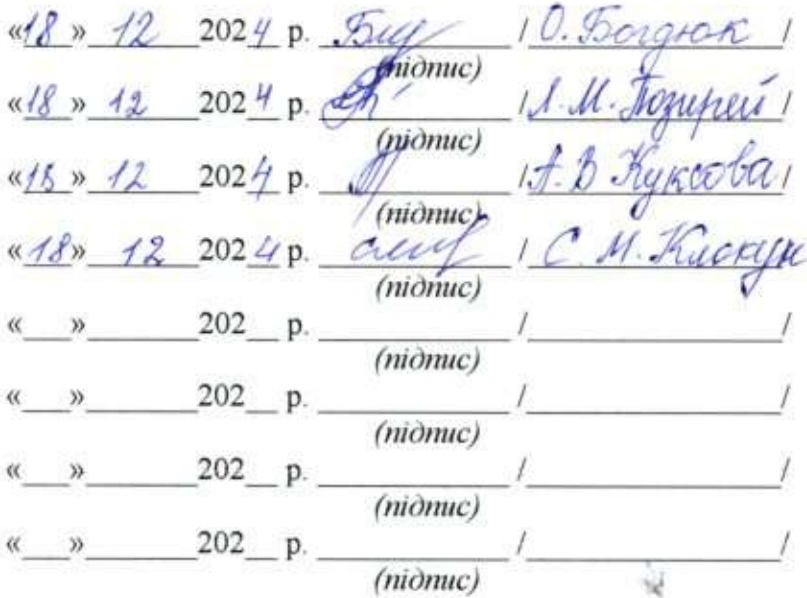 «18» 12 2024 р. / О. Богдюк /
(підпис)
«18» 12 2024 р. / Л. М. Позирей /
(підпис)
«18» 12 2024 р. / А. В Куксова /
(підпис)
«18» 12 2024 р. / С. М. Клокун
(підпис)
«___»________202__ р. ____________ /________________/
(підпис)
«___»________202__ р. ____________ /________________/
(підпис)
«___»________202__ р. ____________ /________________/
(підпис)
«___»________202__ р. ____________ /________________/
(підпис)